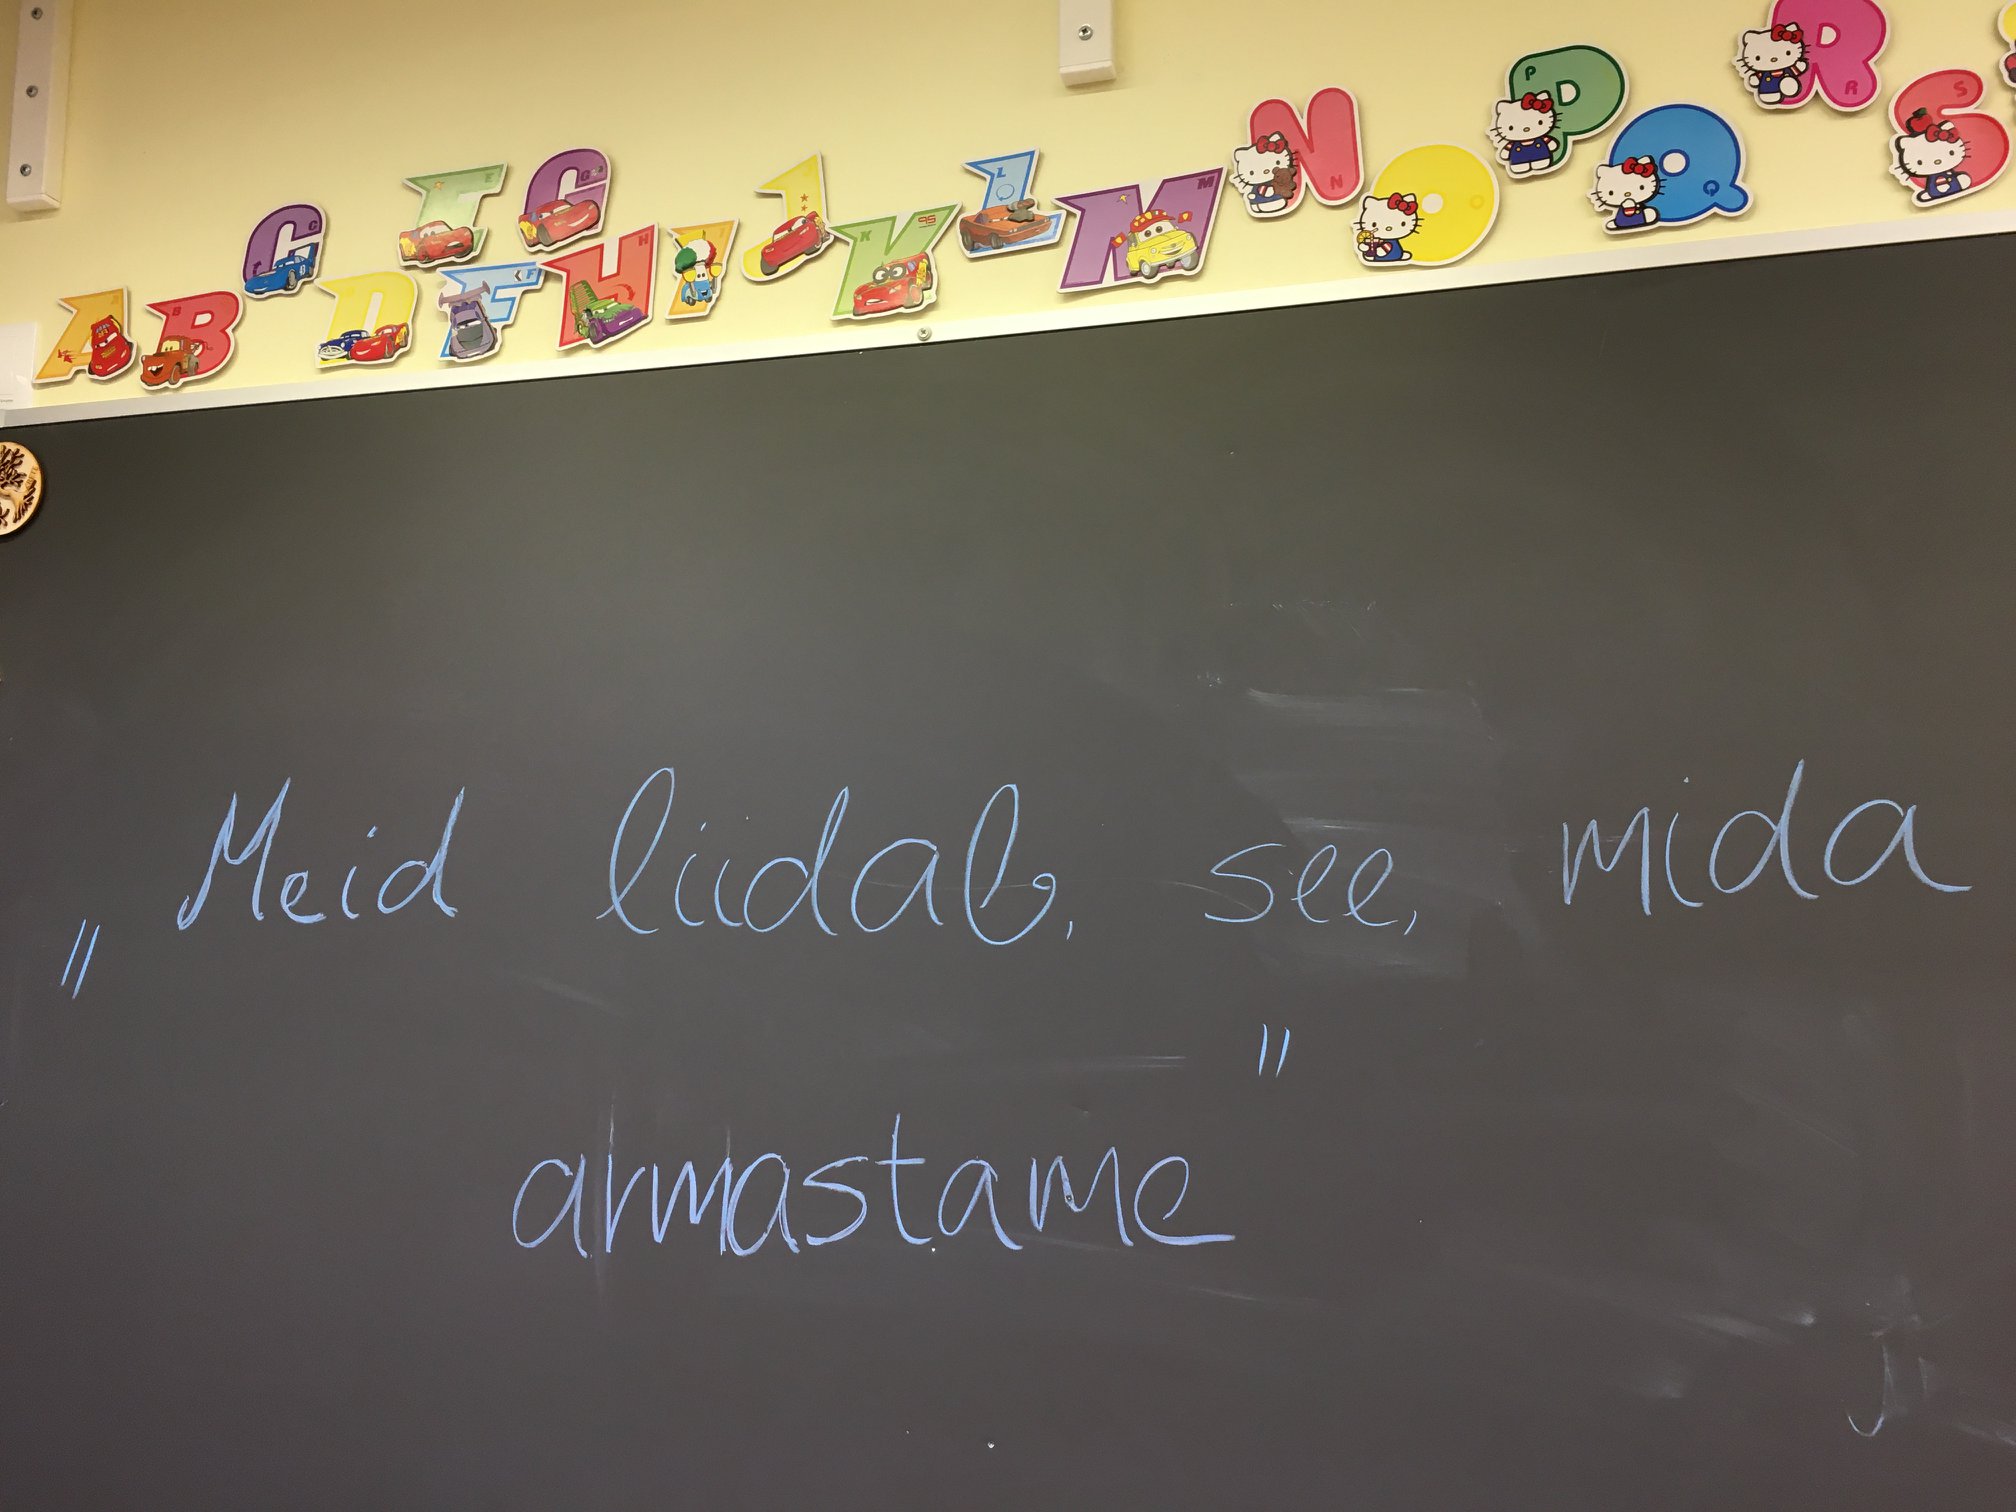 A B C D E F G H I J K L M N O P Q R S
„Meid liidab, see, mida
armastame"